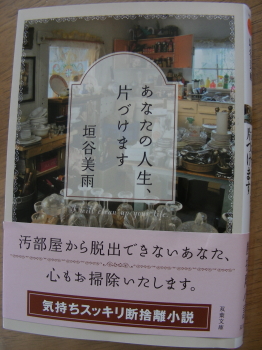 あなたの人生、
片づけます
垣谷美雨
汚部屋から脱出できないあなた、
心もお掃除いたします。
気持ちスッキリ断捨離小説
双葉文庫
片づけます